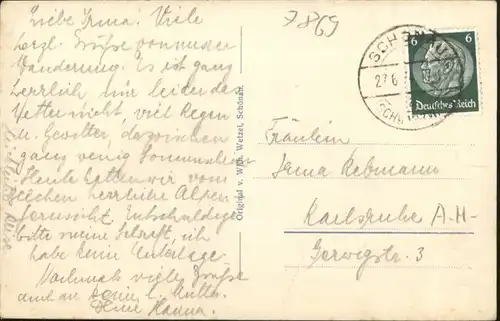 Liebe Irma! Viele
herzl. Grüße von unsrer
Wanderung. Es ist ganz
herrlich nur leider das
Wetter nicht, viel Regen
u. Gewitter, dazwischen
ganz wenig Sonnenschein
Heute hatten wir vom
herrliche Alpen
fernsicht. Entschuldige
bitte meine Schrift, ich
habe keine Unterlage.
Nochmals viele Grüße
auch an Deine l. Mutter
Deine Hanna.
Original v. Wilh. Wetzel, Schönau.
7869
SCHÖNAU
6 6
Deutsches Reich
Fräulein
Irma Rebmann
Karlsruhe A.H.
Gerwigstr. 3